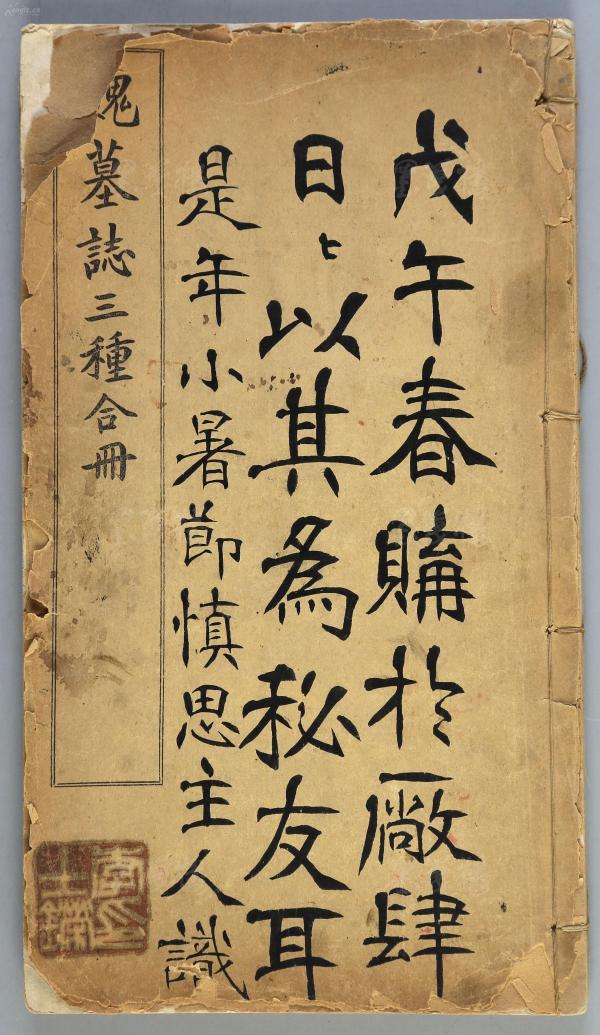 戊午春購於廠肆
日〻以其為秘友耳
是年小暑節慎思主人識
魏墓誌三種合冊